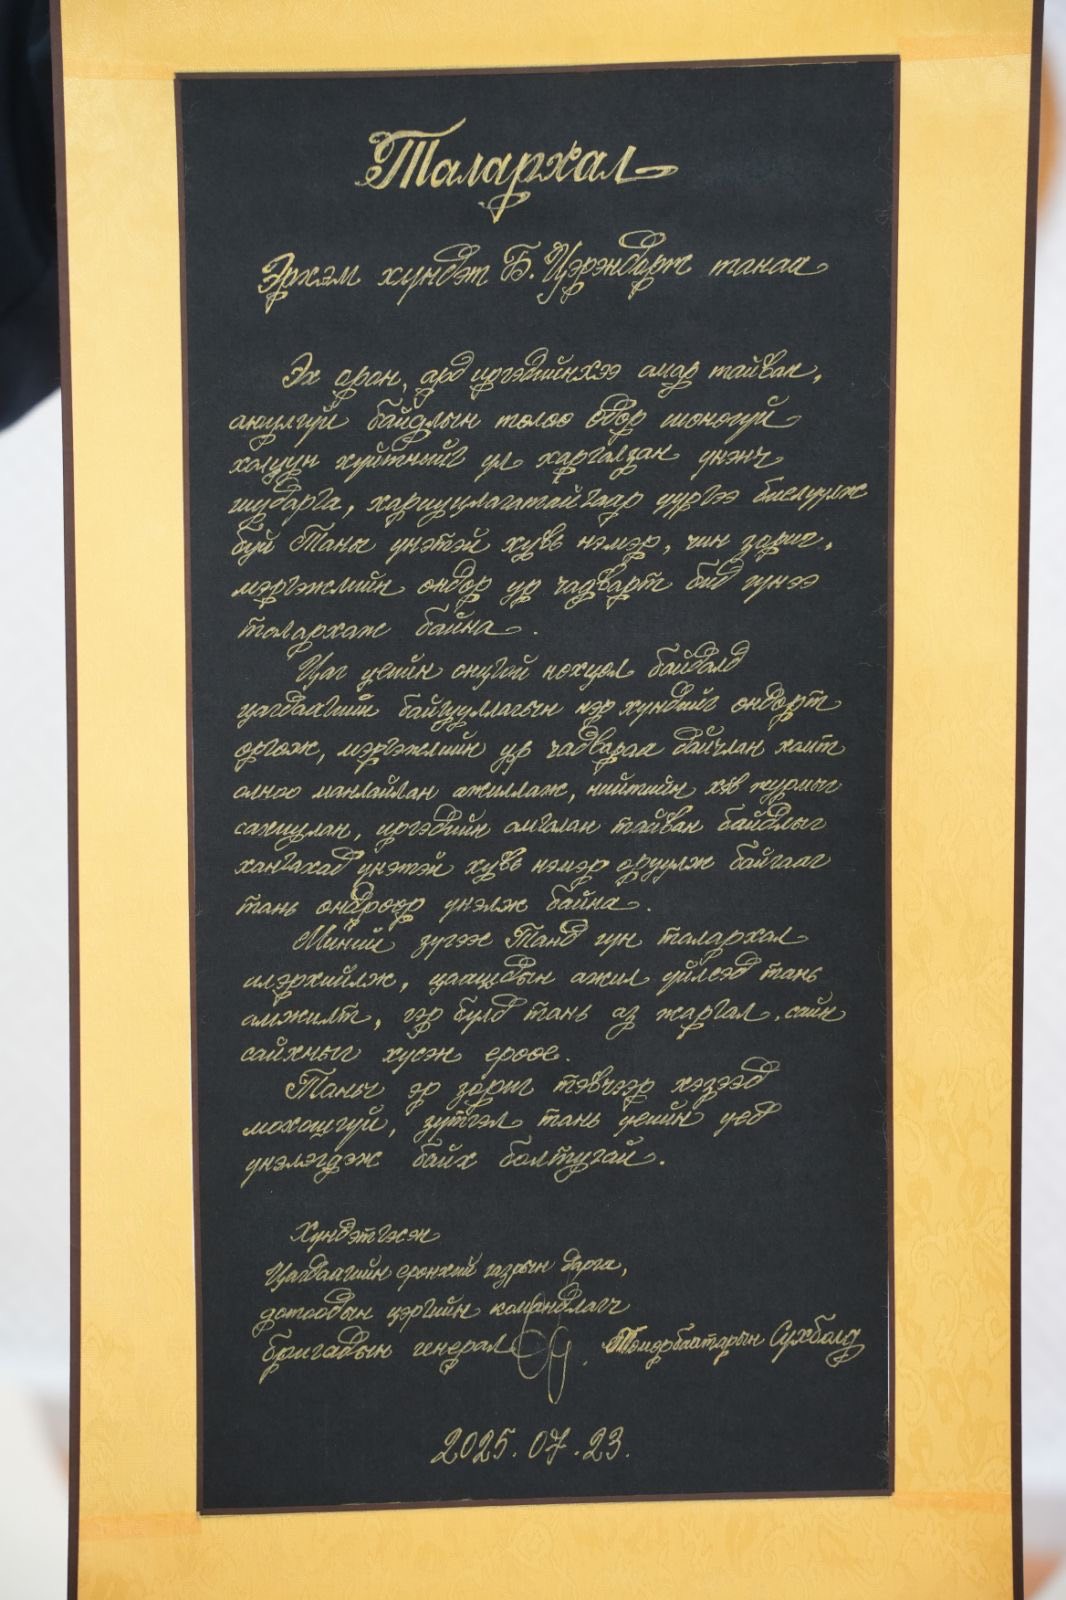 Талархал
Эрхэм хүндэт Б. Цэрэндорж танаа
Эх орон, ард иргэдийнхээ амар тайван,
аюулгүй байдлын төлөө өдөр шөнөгүй
халуун хүйтнийг үл харгалзан үнэнч
шударга, хариуцлагатайгаар үүргээ биелүүлж
буй Таны үнэтэй хувь нэмэр, чин зориг,
мэргэжлийн өндөр ур чадварт бид гүнээ
талархаж байна.
Цаг үеийн онцгой нөхцөл байдалд
цагдаагийн байгууллагын нэр хүндийг өндөрт
өргөж, мэргэжлийн ур чадвараа дайчлан хамт
олноо манлайлан ажиллаж, нийтийн хэв журмыг
сахиулан, иргэдийн амгалан тайван байдлыг
хангахад үнэтэй хувь нэмэр оруулж байгааг
тань өндрөөр үнэлж байна.
Миний зүгээс Танд гүн талархал
илэрхийлж, цаашдын ажил үйлсэд тань
амжилт, гэр бүлд тань аз жаргал, сайн
сайхныг хүсэн ерөөе.
Таны эр зориг тэвчээр хэзээд
мохошгүй, зүтгэл тань үеийн үед
үнэлэгдэж байх болтугай.
Хүндэтгэсэн
Цагдаагийн ерөнхий газрын дарга,
дотоодын цэргийн командлагч
бригадын генерал Төмөрбаатарын Сүхболд
2025.07.23.